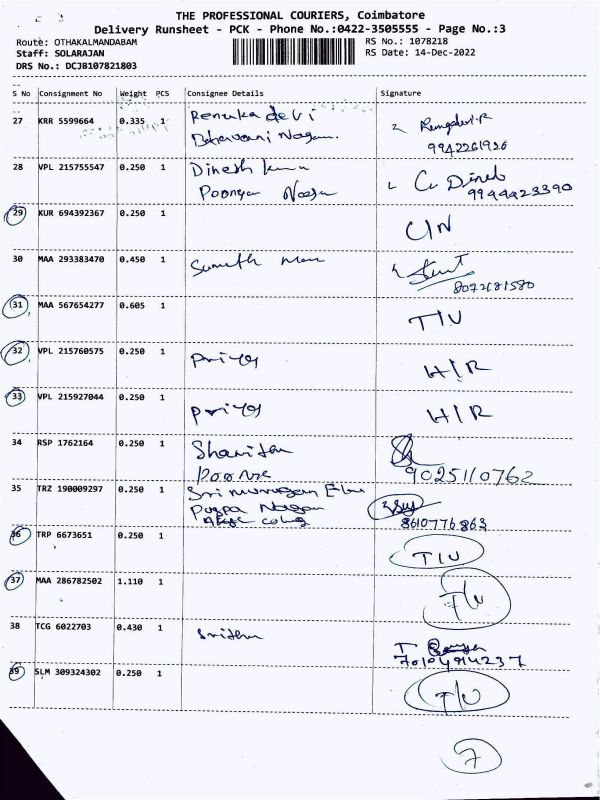 THE PROFESSIONAL COURIERS, Coimbatore
Delivery Runsheet - PCK - Phone No.:0422-3505555 - Page No.:3
Route: OTHAKALMANDABAM
RS No.: 1078218
Staff: SOLARAJAN
RS Date: 14-Dec-2022
DRS No.: DCJB107821803
S No Consignment No Weight PCS Consignee Details Signature
27 KRR 5599664 0.335 1 Renuka devi
Nagar.
9942261926
28 VPL 215755547 0.250 1 Dinesh
9944423390
29 KUR 694392367 0.250 1 C/N
30 MAA 293383470 0.450 1
8072181580
31 MAA 567654277 0.605 1 T/U
32 VPL 215760575 0.250 1 Priya H/R
33 VPL 215927044 0.250 1 Priya H/R
34 RSP 1762164 0.250 1
9025110762
35 TRZ 190009297 0.250 1 Sri murugan
Nagar
8610776863
36 TRP 6673651 0.250 1 T/U
37 MAA 286782502 1.110 1 T/U
38 TCG 6022703 0.430 1
7010494237
39 SLM 309324302 0.250 1 T/U
7